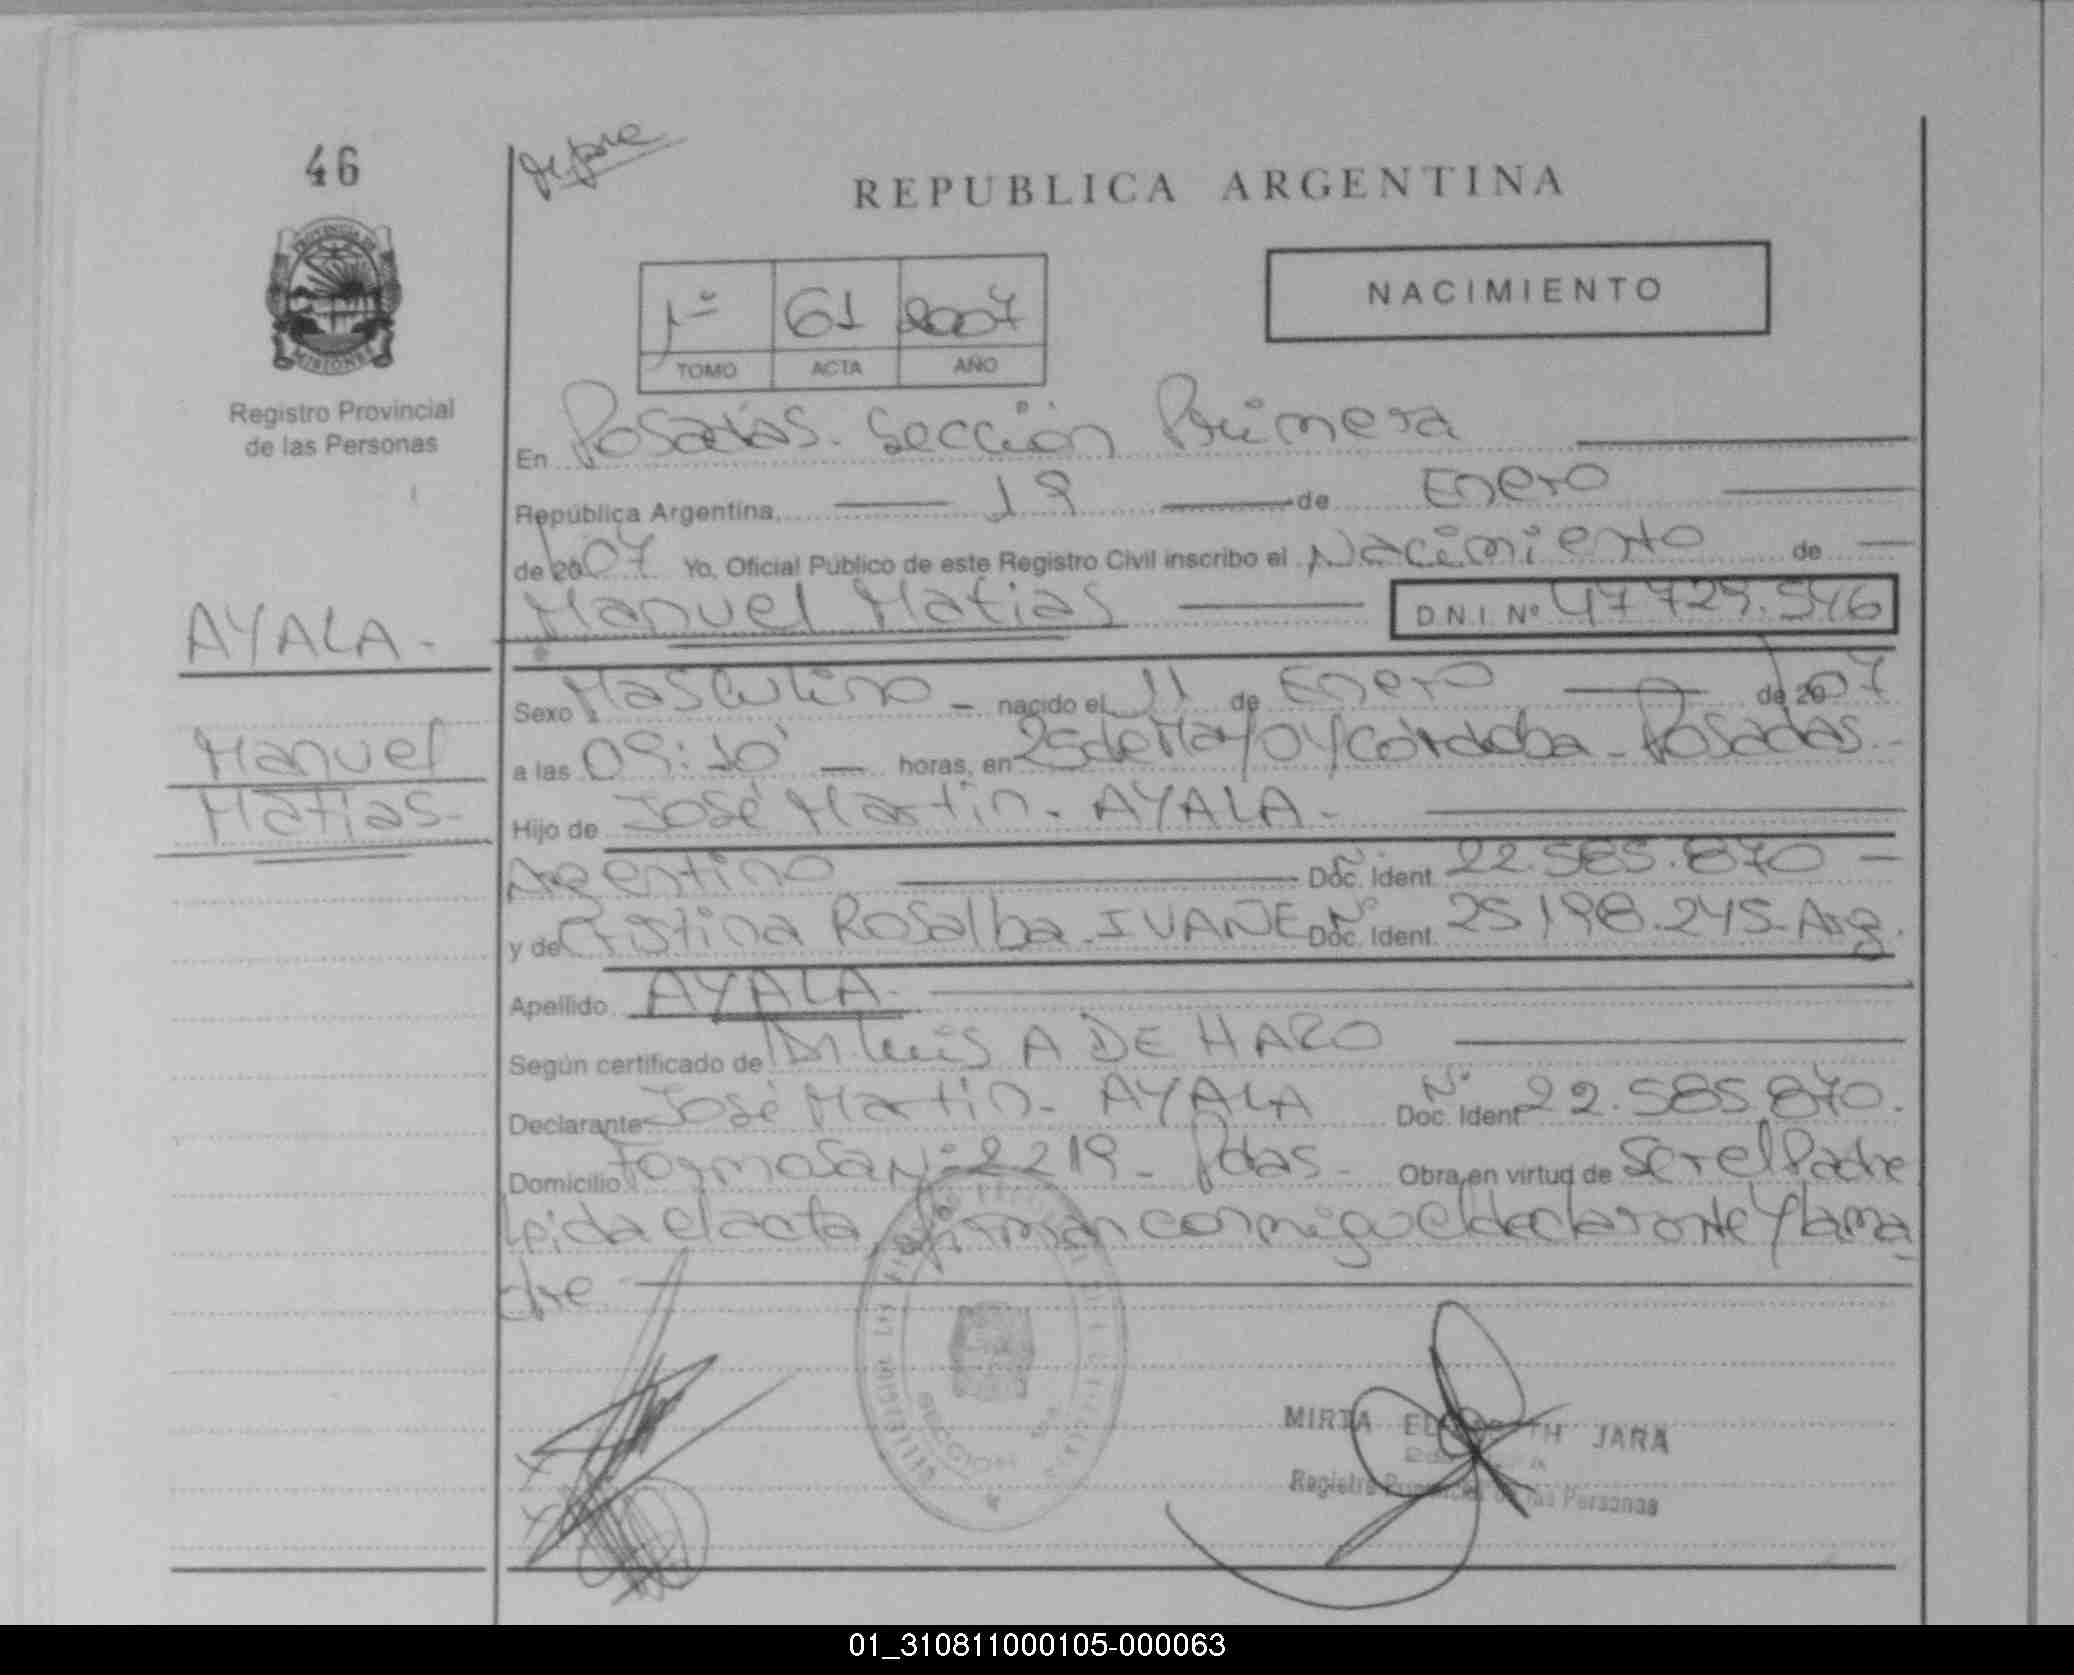 46
REPUBLICA ARGENTINA
PROVINCIA DE
MISIONES
Registro Provincial
de las Personas
1º 61 2007
TOMO ACTA AÑO
NACIMIENTO
En Posadas. Sección Primera
República Argentina, 19 de Enero
de 2007 Yo, Oficial Público de este Registro Civil inscribo el Nacimiento de
AYALA. Manuel Matias D.N.I. Nº 47.729.546
Sexo Masculino nacido el 11 de Enero de 2007
Manuel a las 09:10 horas, en 25 de Mayo y Córdoba - Posadas.
Matias. Hijo de José Martin. AYALA.
Argentino Doc. Ident. Nº 22.585.870
y de Cristina Rosalba Doc. Ident. Nº 25.198.245. Arg.
Apellido AYALA.
Según certificado de Dr. Luis A DE HARO
Declarante José Martin. AYALA Doc. Ident Nº 22.585.870.
Domicilio Formosa Nº 2219. Pdas. Obra en virtud de ser el Padre
Leida el acta, firman conmigo el declarante y la ma
dre.
MIRTA JARA
Registro Provincial de las Personas
01_310811000105-000063